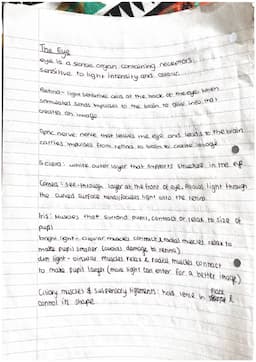 The Eye
eye is a sense organ containing receptors
sensitive to light intensity and colour.
Retina - light sensitive cells at the back of the eye. When
stimulated sends impulses to the brain to
creates an image
Optic nerve: nerve that leaves the eye and leads to the brain
carries impulses from retina to brain to create image
Sclera: white outer layer that supports structure in the eye
Cornea: see-through layer at the front of eye. Allows light through
the curved surface bends/focuses light onto the retina.
Iris: Muscles that surround pupil, contract or relax to size of
pupil
bright light - circular muscles contract & radial muscles relax to
make pupil smaller (avoids damage to retina)
dim light - circular muscles relax & radial muscles contract
to make pupil larger (more light can enter for a better image)
Ciliary muscles & suspensory ligaments: hold lens in place &
control its shape